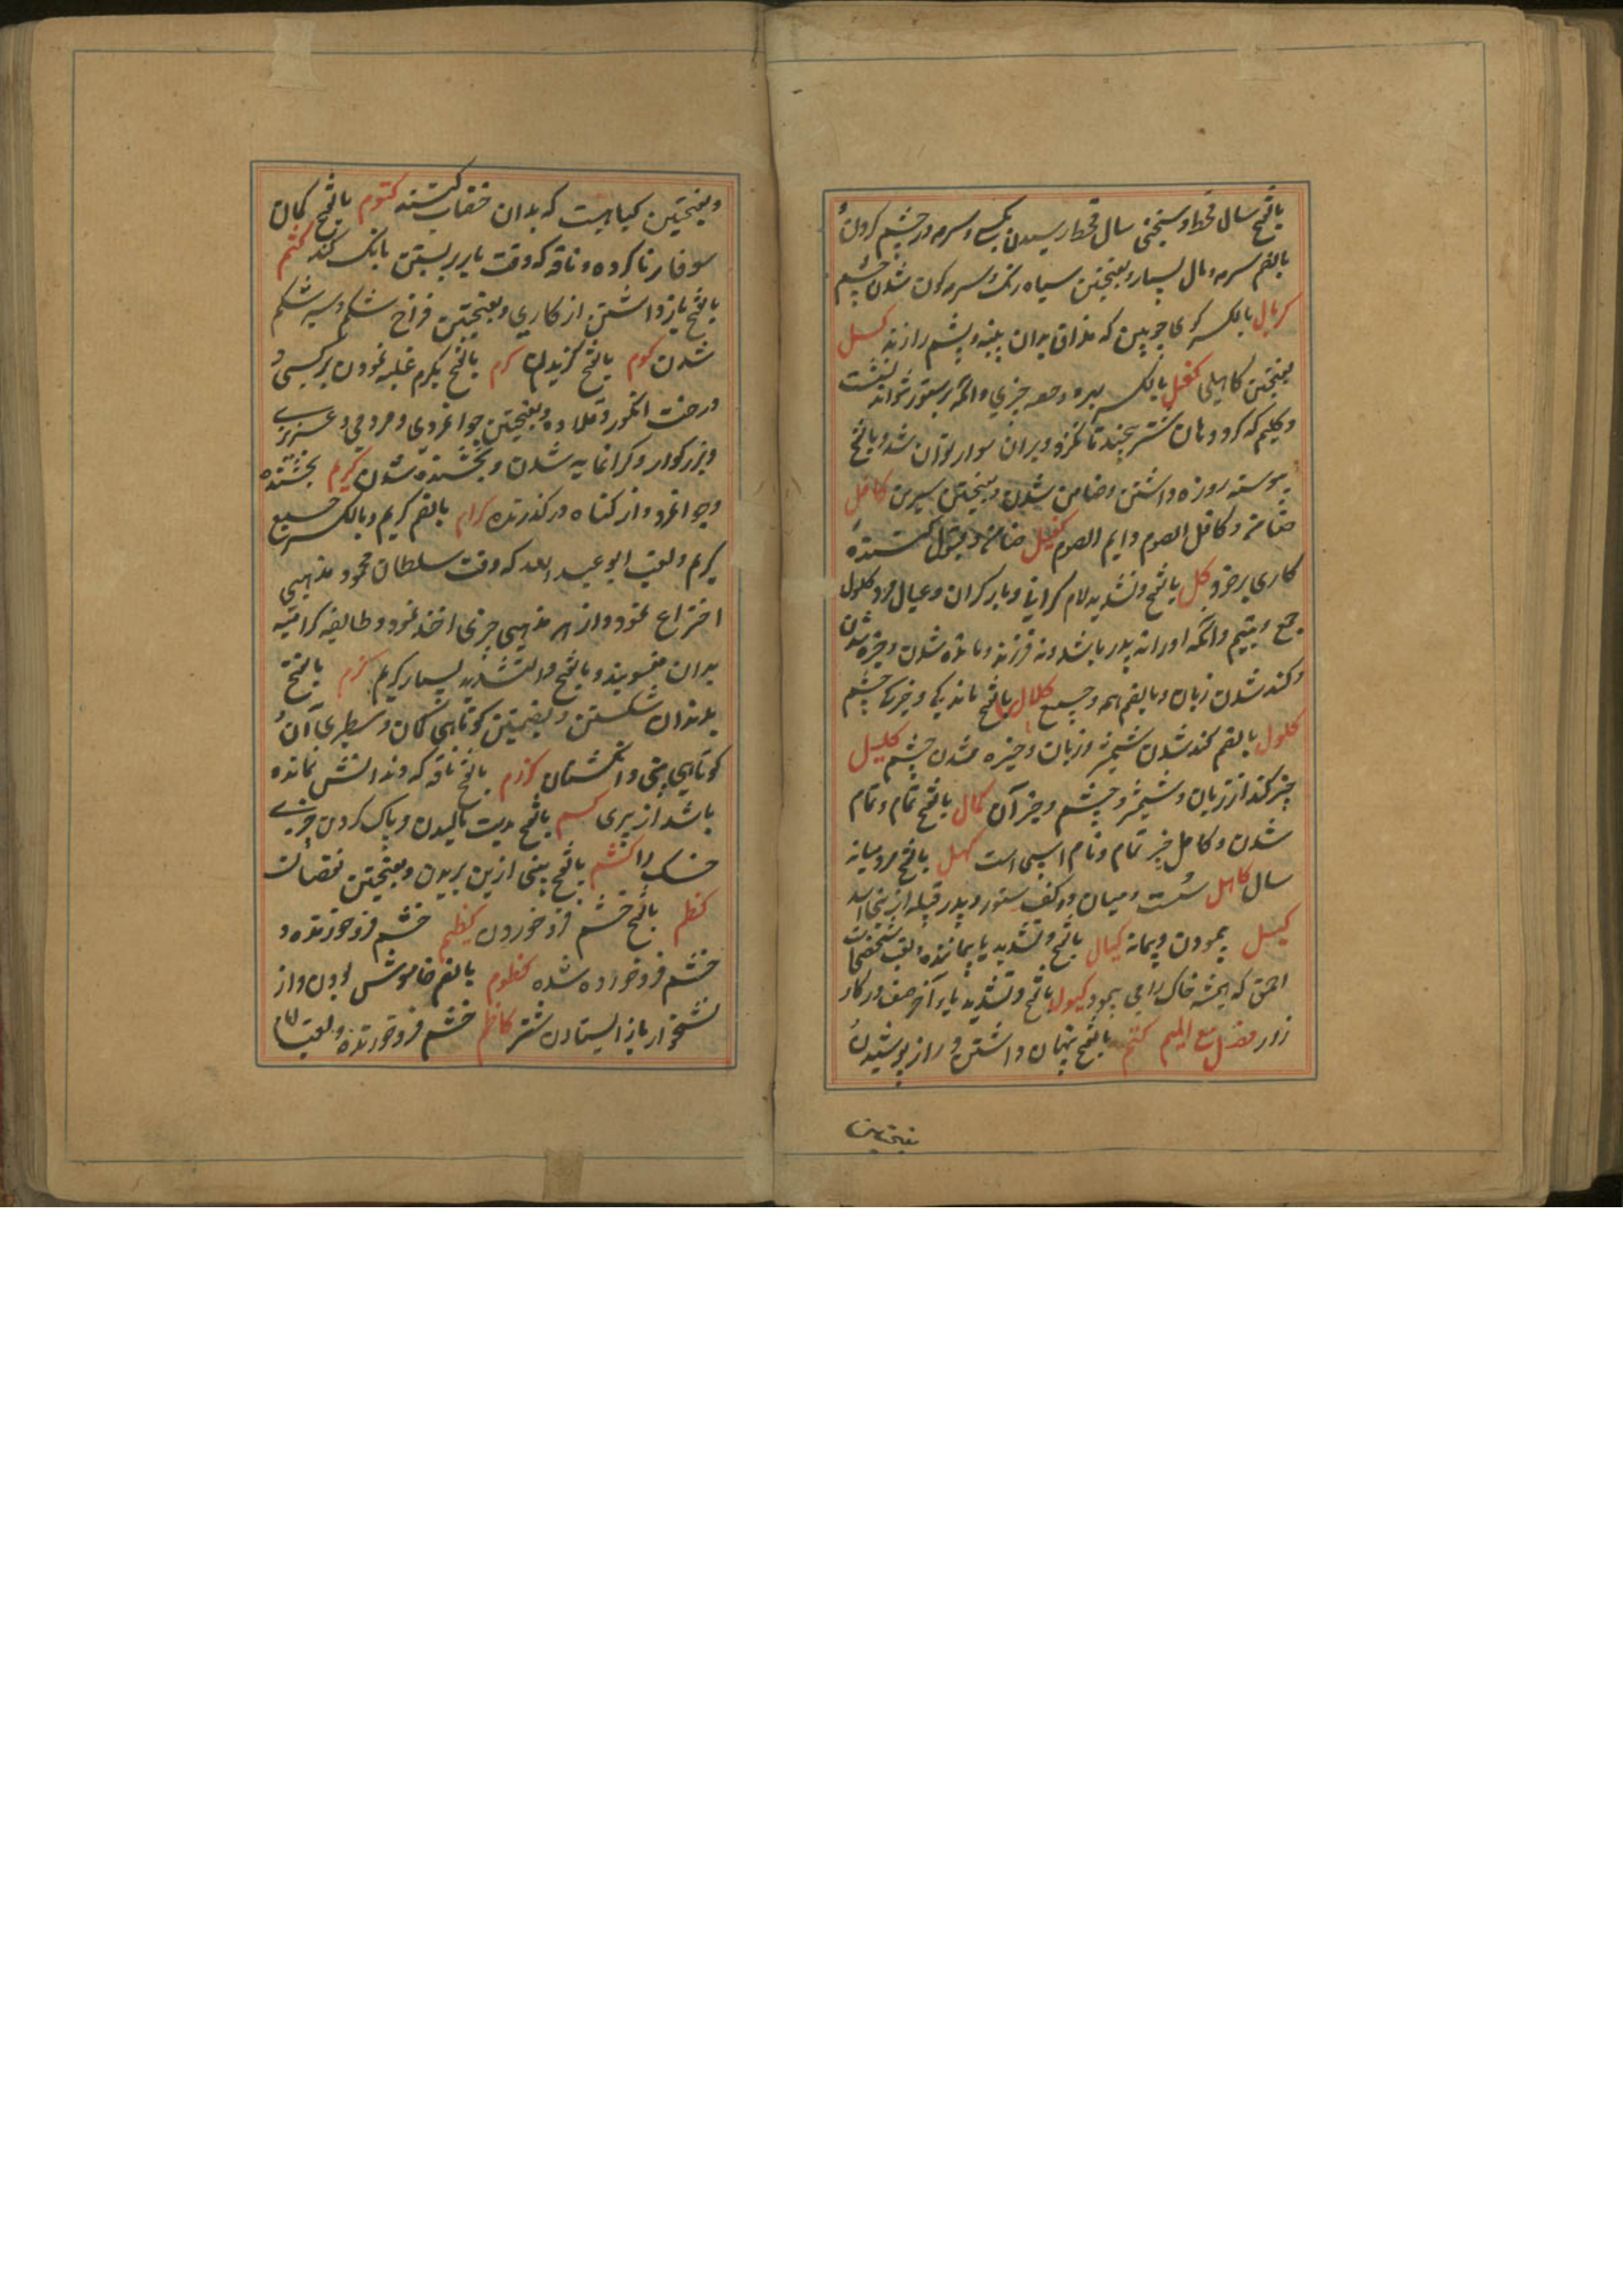 بالفتح سال قحط و سختی سال قحط رسیدن بکسی و سرمه در چشم کردن و
بالضم سرمه و مال بسیار و بفتحتین سیاه رنگ و سرمه کون شدن چشم
کربال بالکسر کوی چوبین که نداف بدان پنبه و پشم را زند کسل
بفتحتین کاهلی کفل بالکسر بهره و حصه چیزی و آنکه بر ستور نتواند نشست
و کلیم که کرد کوهان شتر پیچند تا نلغزد و بران سوار توان شد و بالفتح
پیوسته روزه داشتن و ضامن شدن و بفتحتین سرین کافل
ضامن و کافل الصوم دایم الصوم کفیل ضامن و قبول کننده
کاری بر خود کل بالفتح و تشدید لام کرانی و بار کران و عیال مرد کلول
جمع و یتیم و آنکه او را نه پدر باشد و نه فرزند و مانده شدن و خیره شدن
و کند شدن زبان و بالضم همه و جمیع کلال بالفتح ماندگی و خیرگی چشم
کلول بالضم کند شدن شمشیر و زبان و خیره شدن چشم کلیل
چیز کند از زبان و شمشیر و چشم و جز آن کمال بالفتح تمام و تمام
شدن و کامل چیز تمام و نام اسپی است کهل بالفتح مرد میانه
سال کاهل سست و میان دو کتف ستور و پدر قبیله از بنی اسد
کیل پیمودن و پیمانه کیال بالفتح و تشدید یا پیماننده و لقب شخصی است
احمق که همیشه خاک را می پیمود کیول بالفتح و تشدید یا بر آخر صف در کار
زار فصل مع المیم کتم بالفتح پنهان داشتن و راز پوشیدن
بفتحتین
و بفتحتین کیاهیست که بدان خضاب کنند کتوم بالفتح کمان
سوفار ناکرده و ناقه که وقت بار بر بستن بانک نکند کثم
بالفتح باز داشتن از کاری و بفتحتین فراخ شکم و سیر شکم
شدن کدم بالفتح گزیدن کرم بالفتح بکرم غلبه نمودن بر کسی و
درخت انگور و قلاده و بفتحتین جوانمردی و مردمی و عزیزی
و بزرگوار و گرانمایه شدن و بخشنده شدن کریم بخشنده
و جوانمرد و از گناه در گذرنده کرام بالضم کریم و بالکسر جمع
کریم و لقب ابو عبد الله که وقت سلطان محمود مذهبی
اختراع نمود و از هر مذهبی چیزی اخذ نمود و طایفه کرامیه
بدان منسوبند و بالفتح و التشدید بسیار کریم کزم بالفتح
بدندان شکستن و بفتحتین کوتاهی کمان و سطبری آن و
کوتاهی بینی و انگشتان کزوم بالفتح ناقه که دندانش نمانده
باشد از پیری کسم بالفتح بدست مالیدن و پاک کردن چیزی
خشک را کشم بالفتح بینی از بن بریدن و بفتحتین نقصان
کظم بالفتح خشم فرو خوردن کظیم خشم فرو خورنده و
خشم فرو خورده شده کظوم بالضم خاموش بودن و از
نشخوار باز ایستادن شتر کاظم خشم فرو خورنده و لقب امام